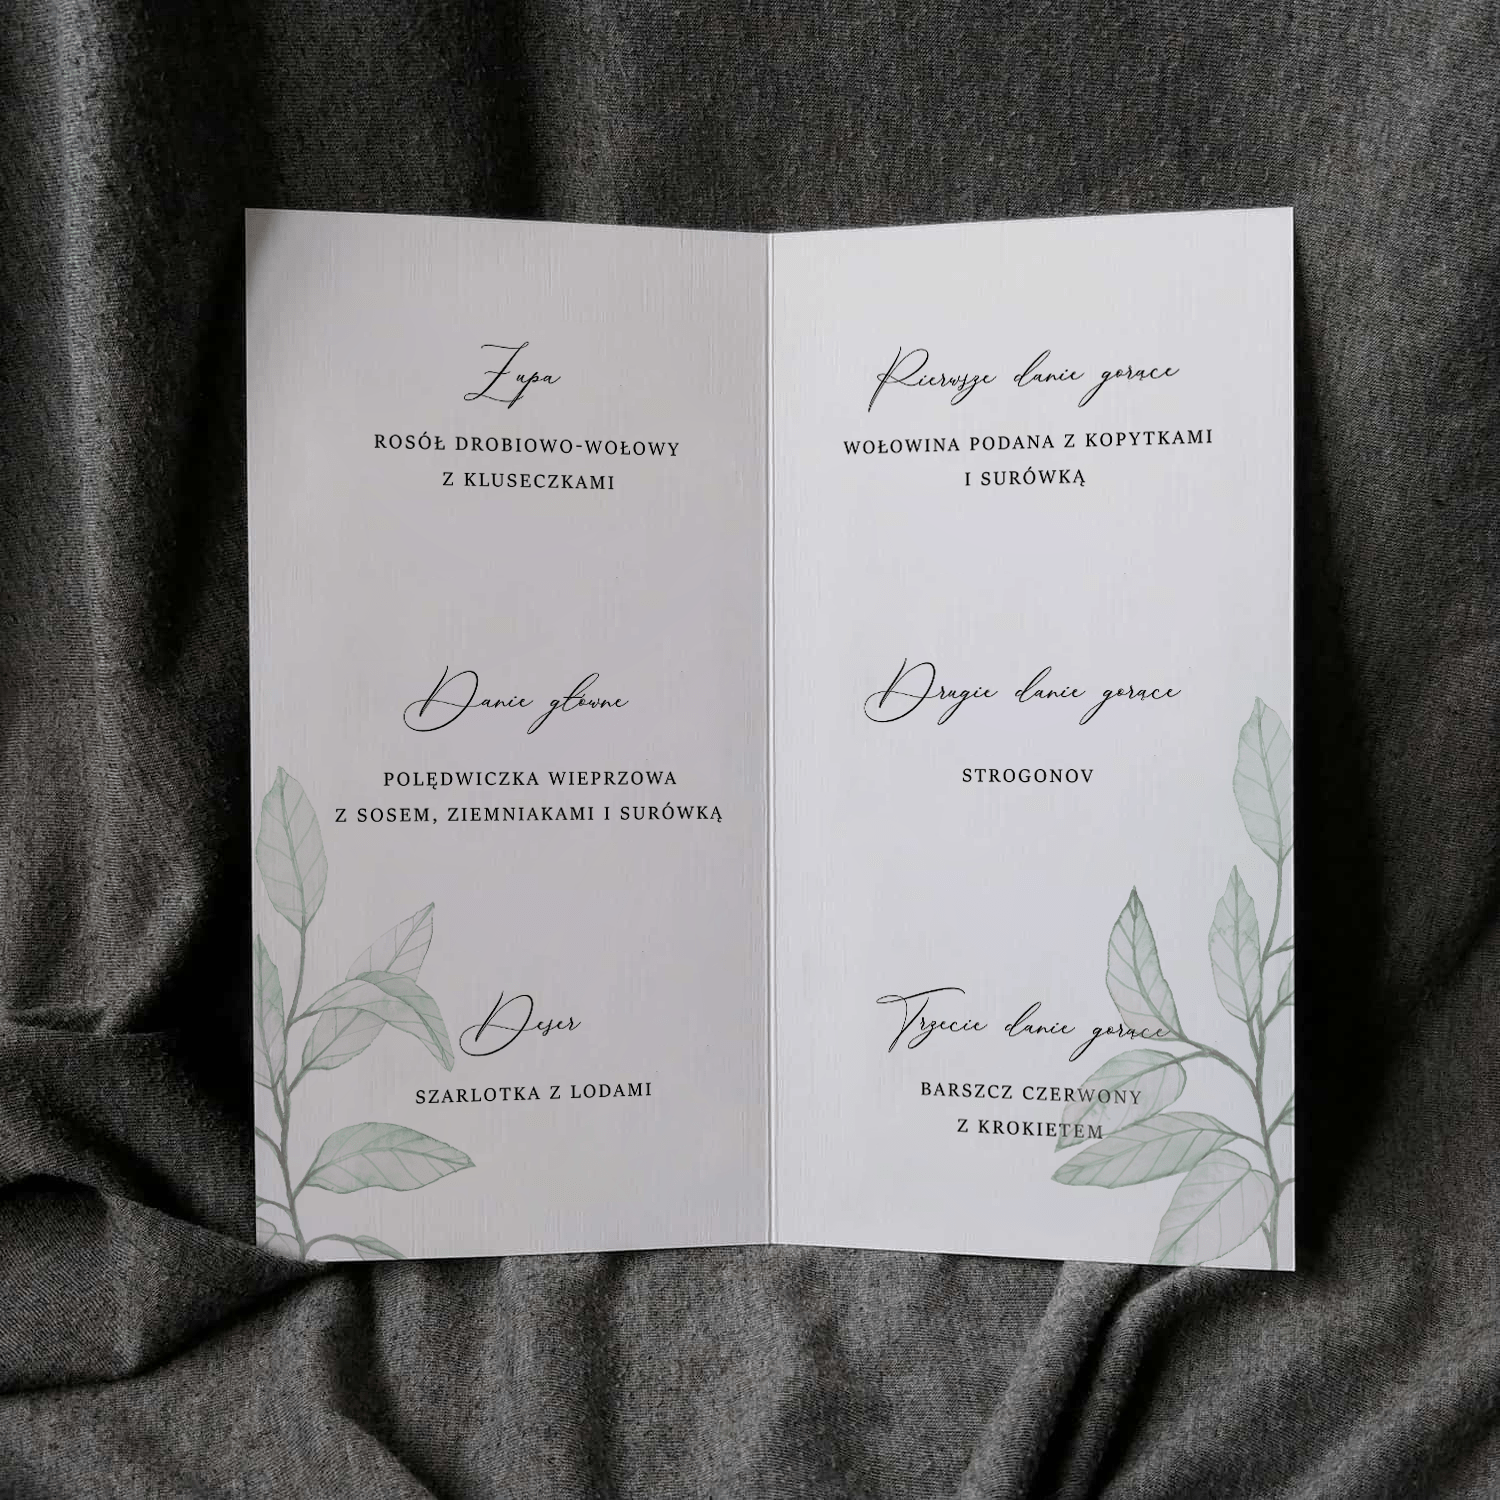 Zupa
ROSÓŁ DROBIOWO-WOŁOWY
Z KLUSECZKAMI
Danie główne
POLĘDWICZKA WIEPRZOWA
Z SOSEM, ZIEMNIAKAMI I SURÓWKĄ
Deser
SZARLOTKA Z LODAMI
Pierwsze danie gorące
WOŁOWINA PODANA Z KOPYTKAMI
I SURÓWKĄ
Drugie danie gorące
STROGONOV
Trzecie danie gorące
BARSZCZ CZERWONY
Z KROKIETEM